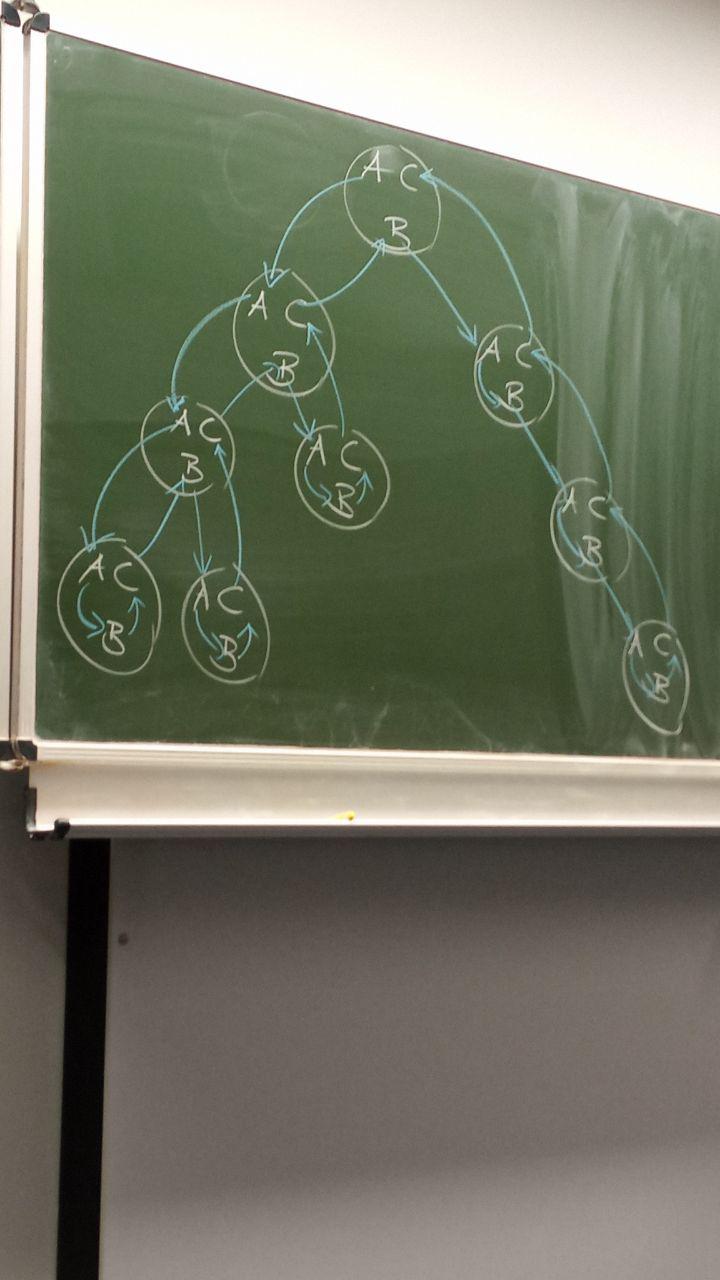 A C
B
A C
B
A C
B
A C
B
A C
B
A C
B
A C
B
A C
B
A C
B